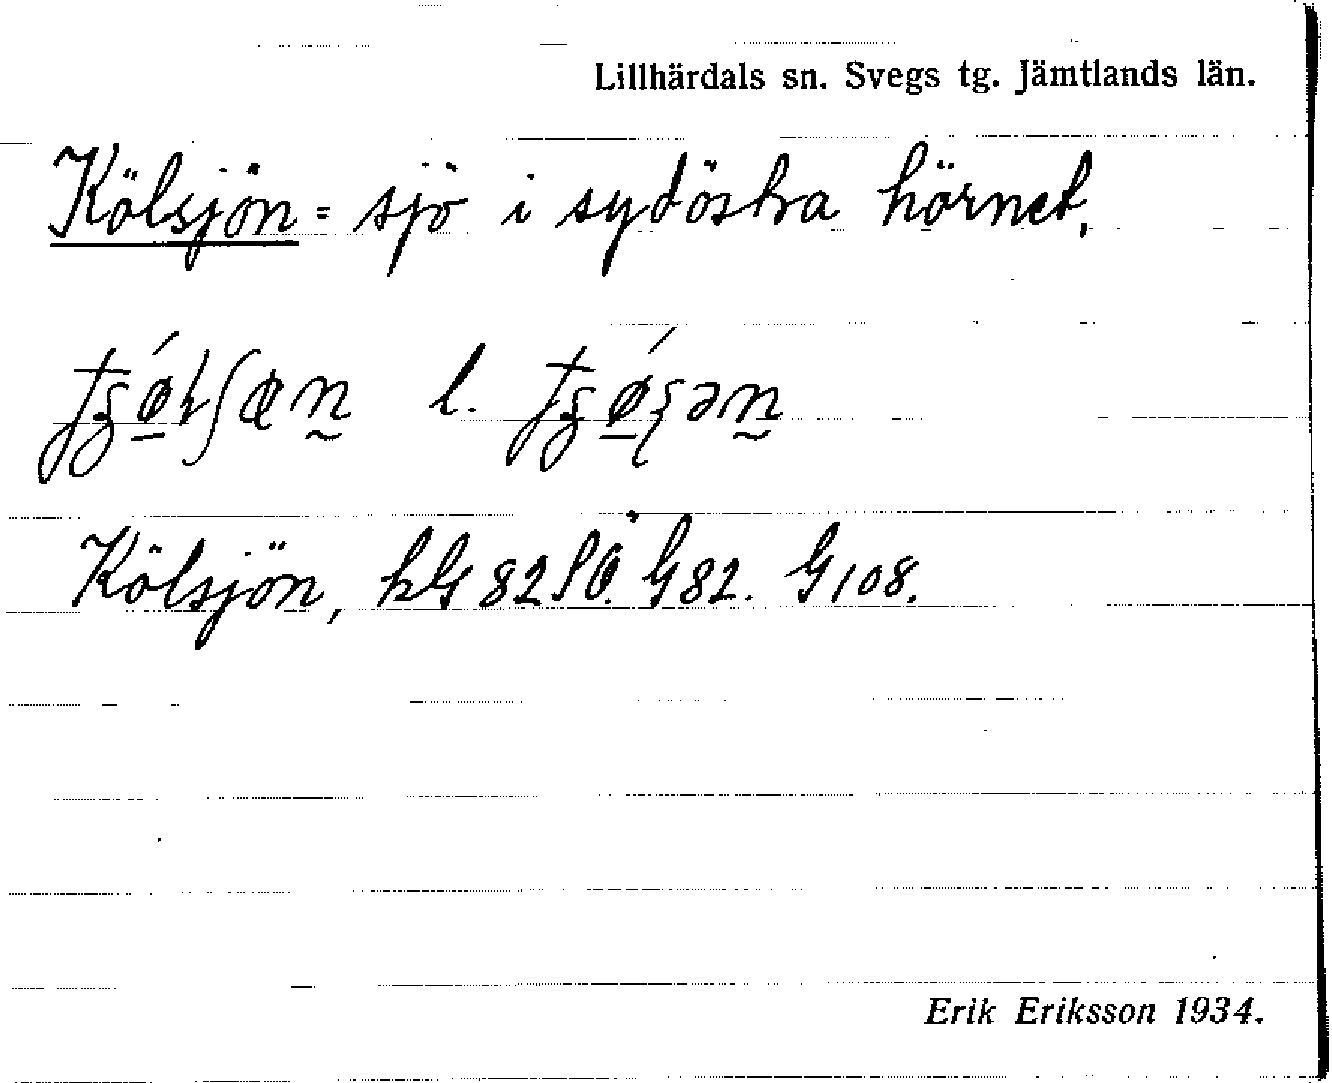 Lillhärdals sn. Svegs tg. Jämtlands län.
Kölsjön = sjö i sydöstra hörnet,
l.
Kölsjön, kG 82 SÖ. G 82. G 108.
Erik Eriksson 1934.